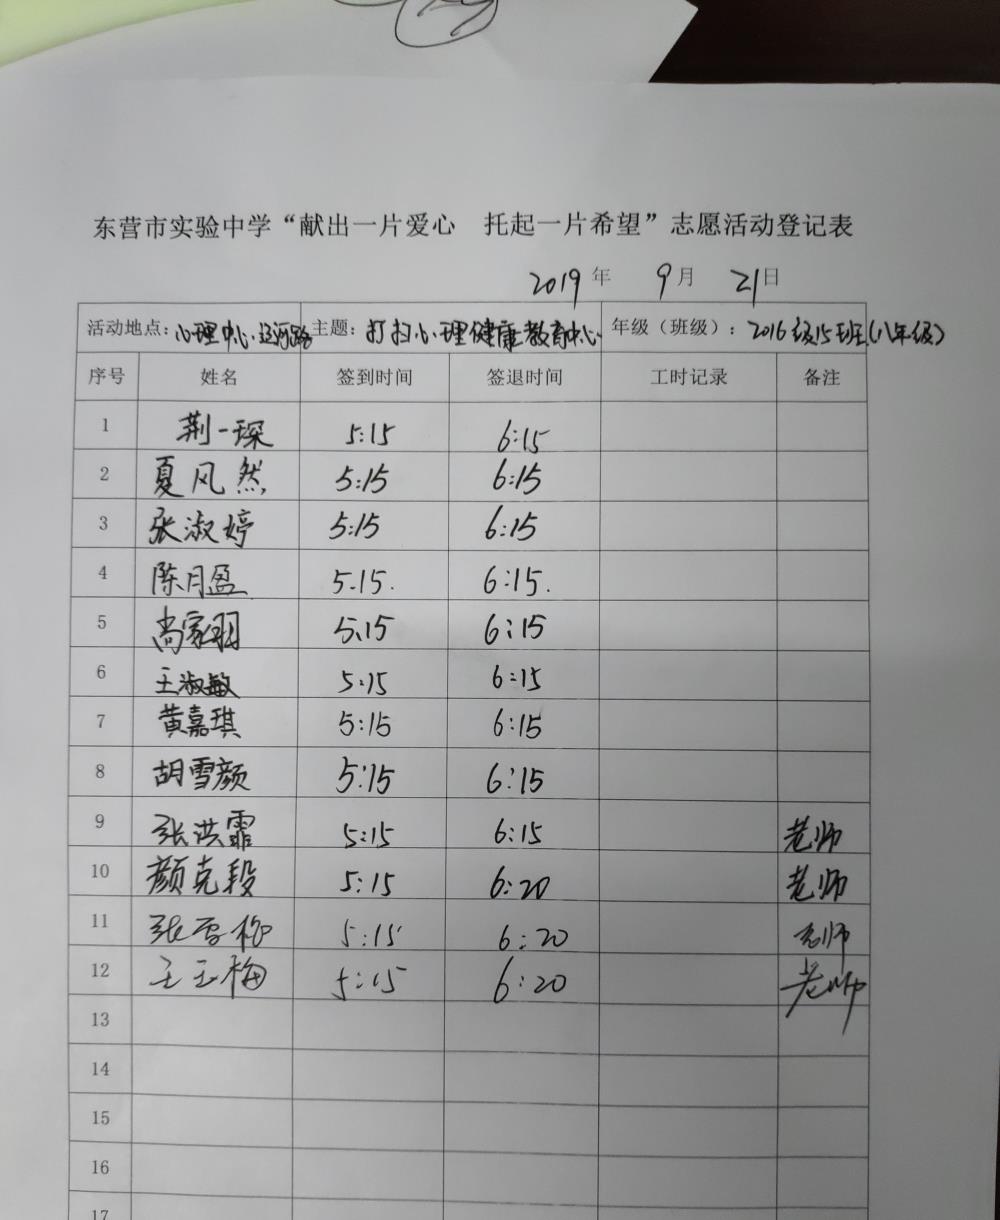 东营市实验中学“献出一片爱心 托起一片希望”志愿活动登记表
2019年 9月 21日
活动地点：心理中心·运河路 主题：打扫心理健康教育中心 年级（班级）：2016级15班(八年级)
序号 姓名 签到时间 签退时间 工时记录 备注
1 荆一琛 5:15 6:15
2 夏风然 5:15 6:15
3 张淑婷 5:15 6:15
4 陈月盈 5.15. 6:15.
5 尚家羽 5.15 6:15
6 王淑敏 5:15 6:15
7 黄嘉琪 5:15 6:15
8 胡雪颜 5:15 6:15
9 张洪霏 5:15 6:15 老师
10 颜克段 5:15 6:20 老师
11 张雪梅 5:15 6:20 老师
12 王玉梅 5:15 6:20 老师
13
14
15
16
17